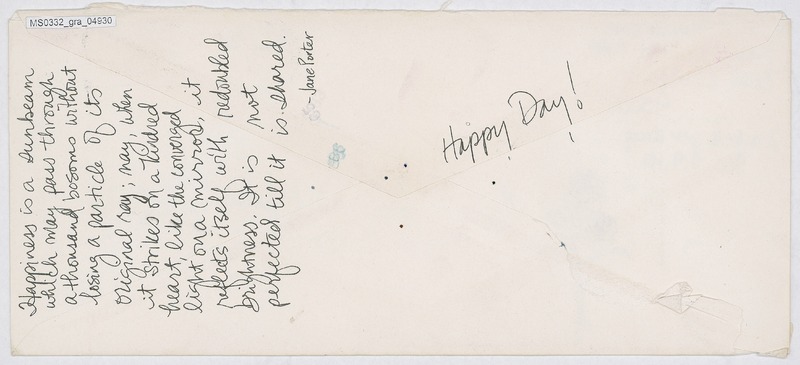 MS0332_gra_04930
Happiness is a sunbeam
which may pass through
a thousand bosoms without
losing a particle of its
original ray; nay, when
it strikes on a kindred
heart, like the converged
light on a mirror, it
reflects itself with redoubled
brightness. It is not
perfected till it is shared.
- Jane Porter
Happy Day!